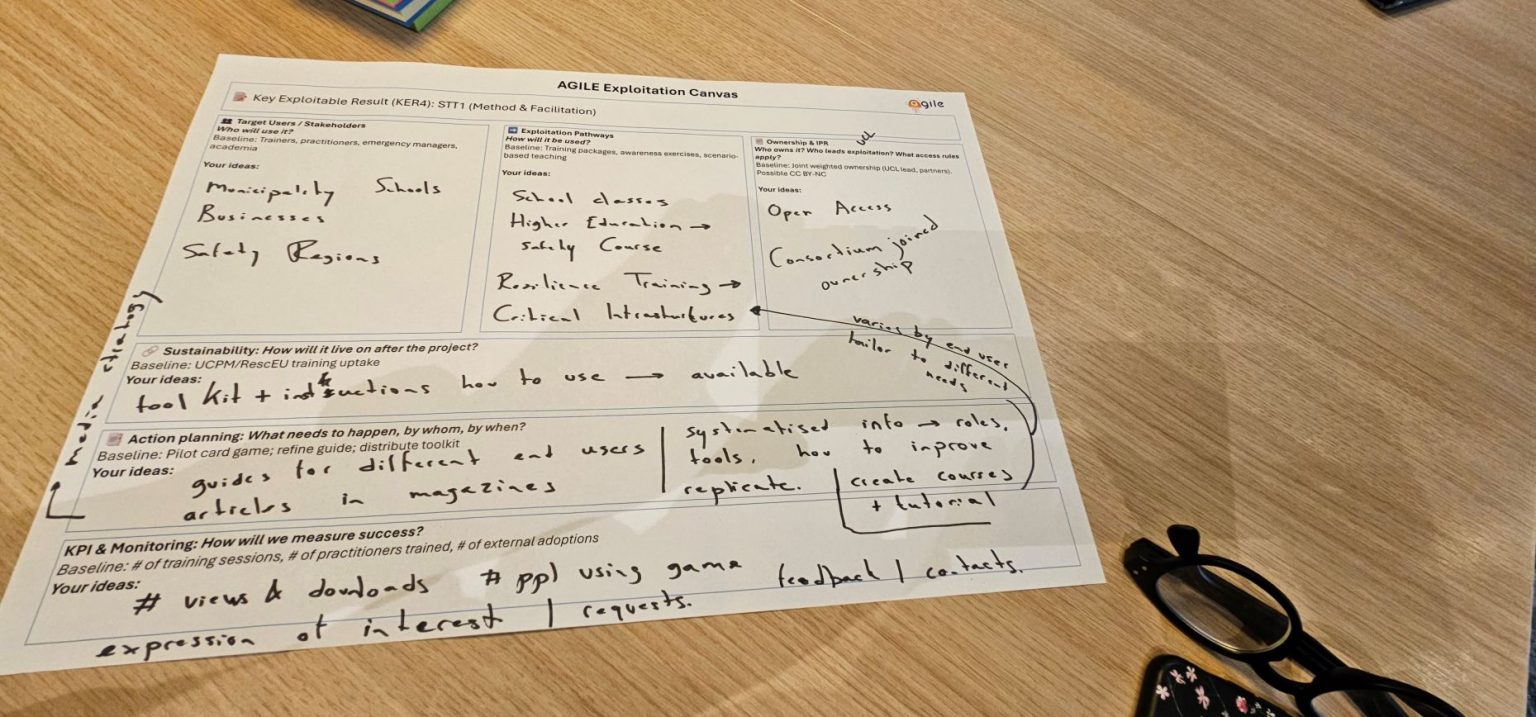 AGILE Exploitation Canvas
agile
Key Exploitable Result (KER4): STT1 (Method & Facilitation)
Target Users / Stakeholders
Who will use it?
Baseline: Trainers, practitioners, emergency managers,
academia
Your ideas:
Municipality Schools
Businesses
Safety Regions
Exploitation Pathways
How will it be used?
Baseline: Training packages, awareness exercises, scenario-
based teaching
Your ideas:
School classes
Higher Education →
Safety Course
Resilience Training →
Critical Infrastructures
UCL
Ownership & IPR
Who owns it? Who leads exploitation? What access rules
apply?
Baseline: Joint weighted ownership (UCL lead, partners).
Possible CC BY-NC
Your ideas:
Open Access
Consortium joined
ownership
varies by end user
tailor to different
needs
Sustainability: How will it live on after the project?
Baseline: UCPM/RescEU training uptake
Your ideas:
tool kit + instructions how to use → available
Action planning: What needs to happen, by whom, by when?
Baseline: Pilot card game; refine guide; distribute toolkit
Your ideas:
guides for different end users
articles in magazines
systematised info → roles,
tools, how to improve
replicate.
create courses
+ tutorial
media strategy
KPI & Monitoring: How will we measure success?
Baseline: # of training sessions, # of practitioners trained, # of external adoptions
Your ideas:
# views & downloads # ppl using game feedback / contacts.
expression of interest / requests.